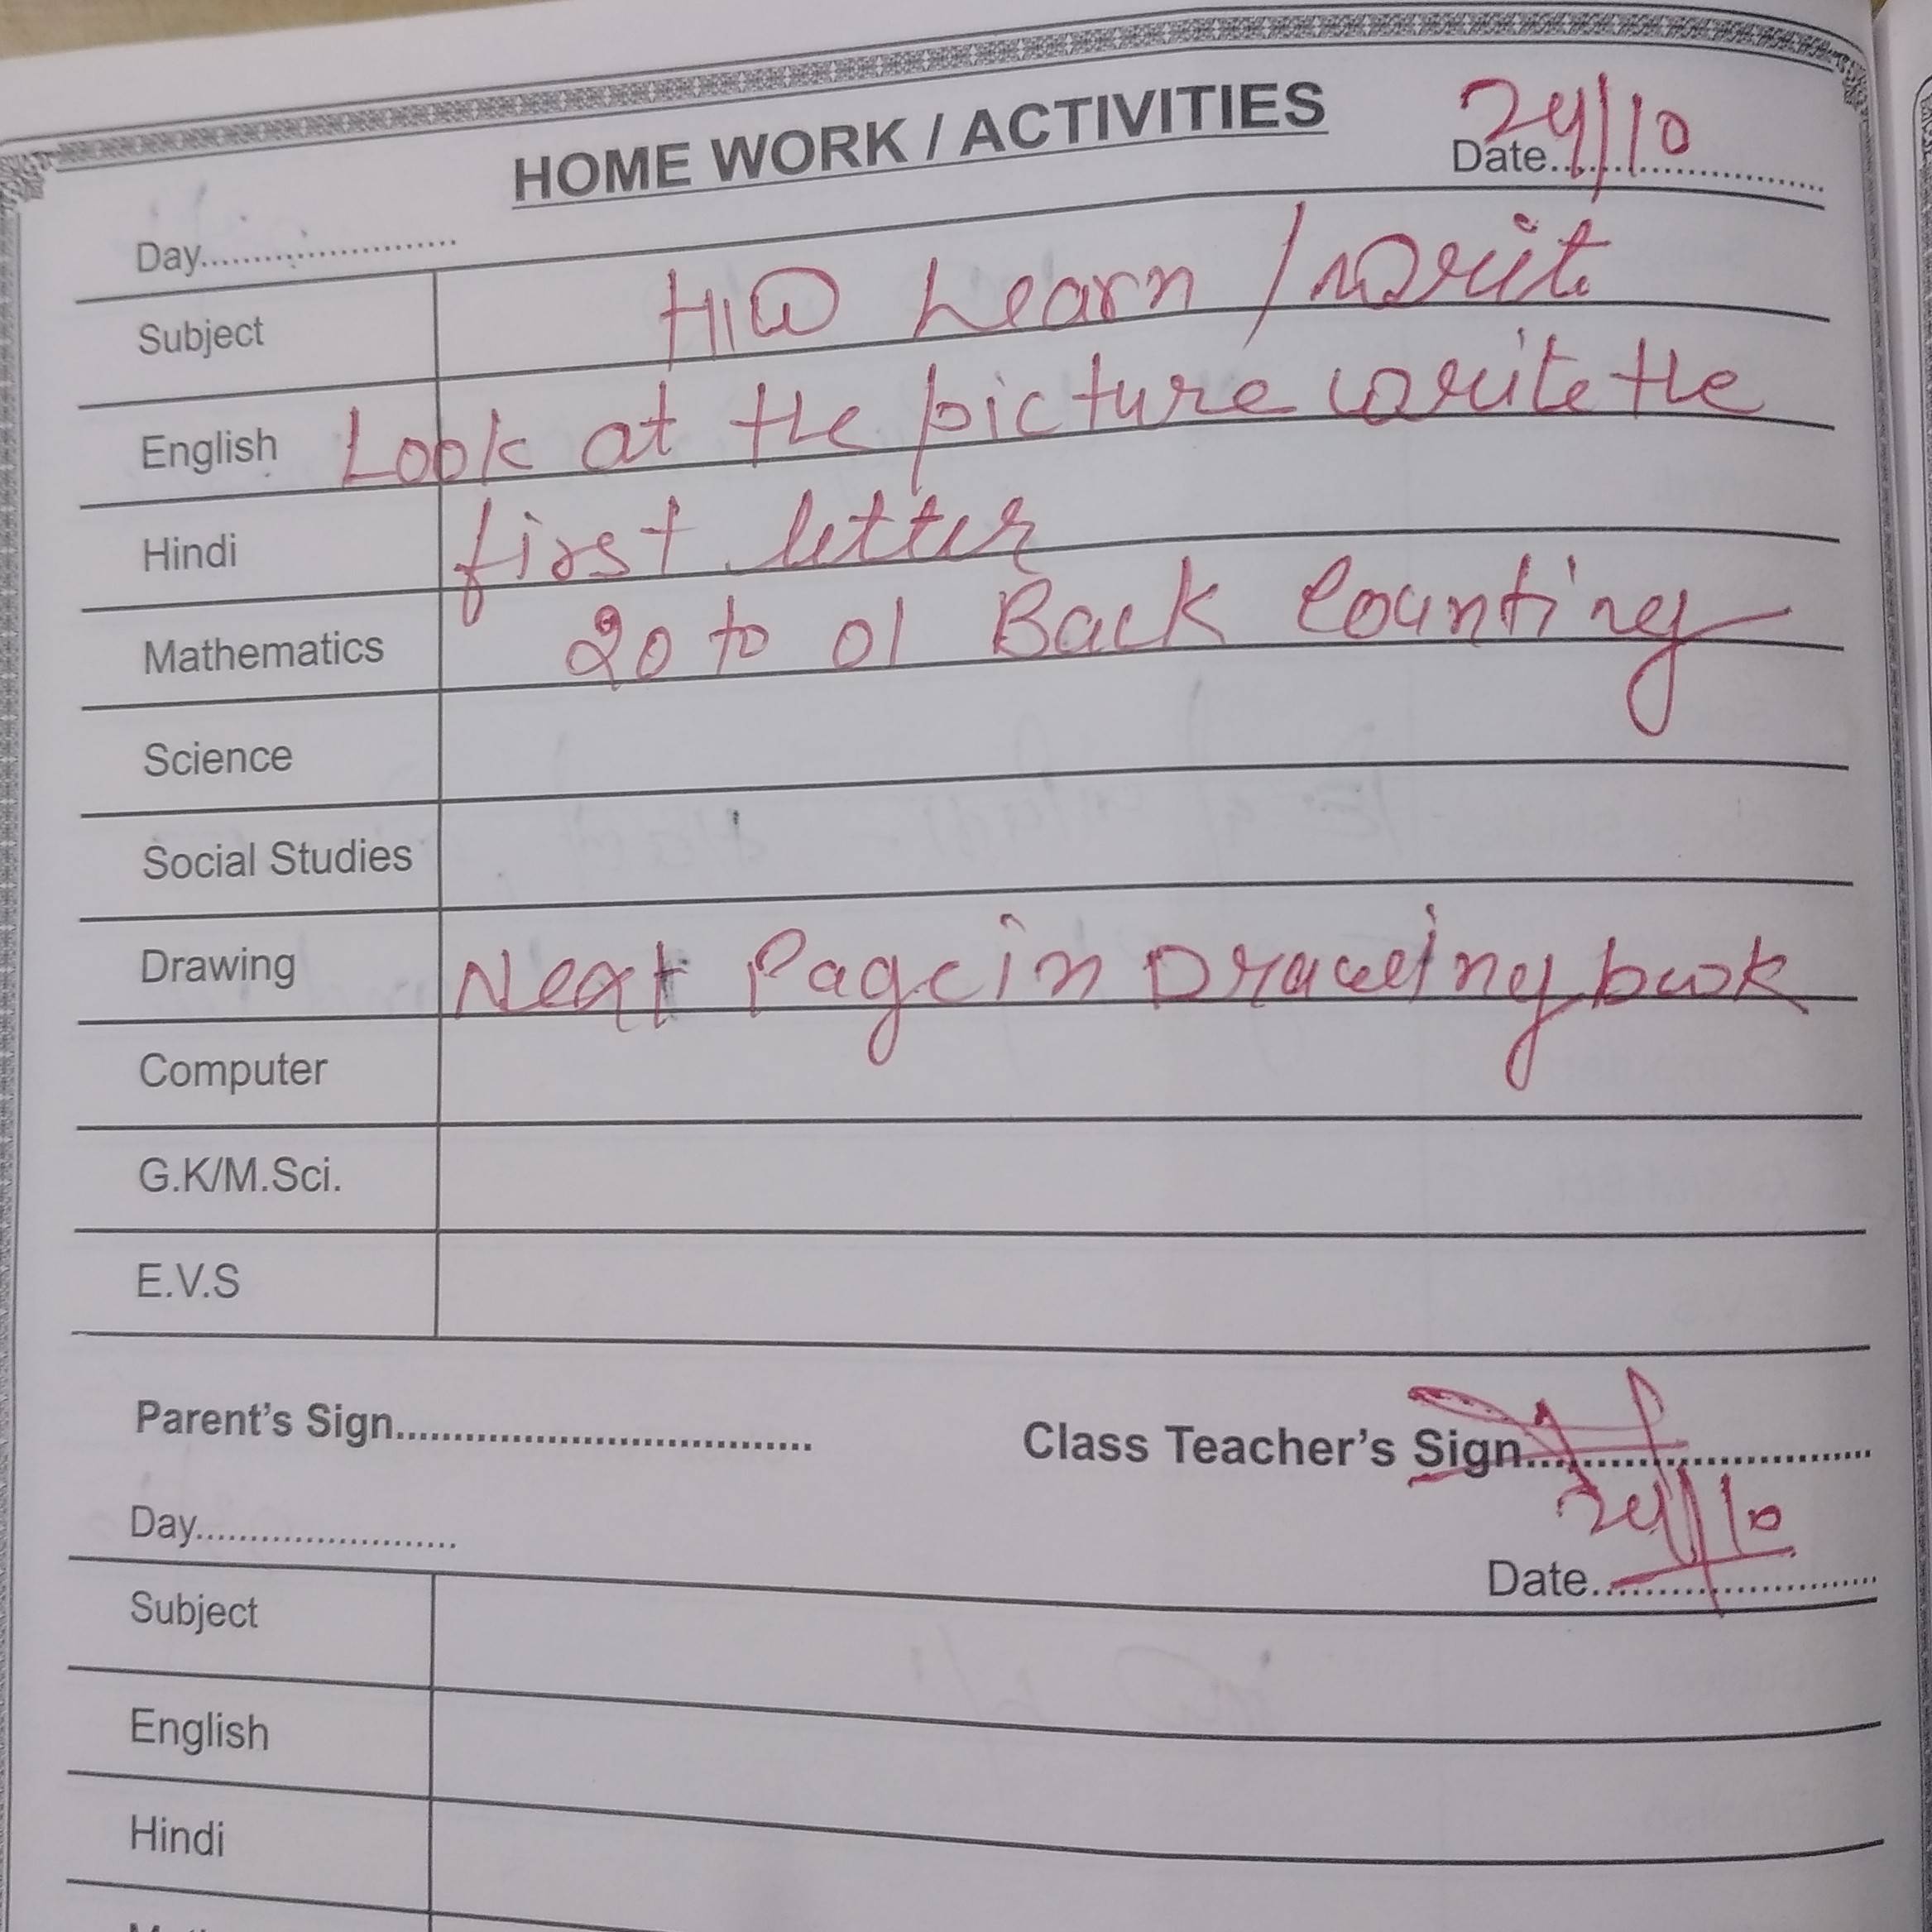 HOME WORK / ACTIVITIES
Date.......... 24/10
Day......................
Subject H/W Learn / Writ
English Look at the picture write the
Hindi first letter
Mathematics 20 to 01 Back Counting
Science
Social Studies
Drawing Next Page in Drawing book
Computer
G.K/M.Sci.
E.V.S
Parent's Sign....................................
Class Teacher's Sign....................................
24/10
Day.......................
Date..........................
Subject
English
Hindi